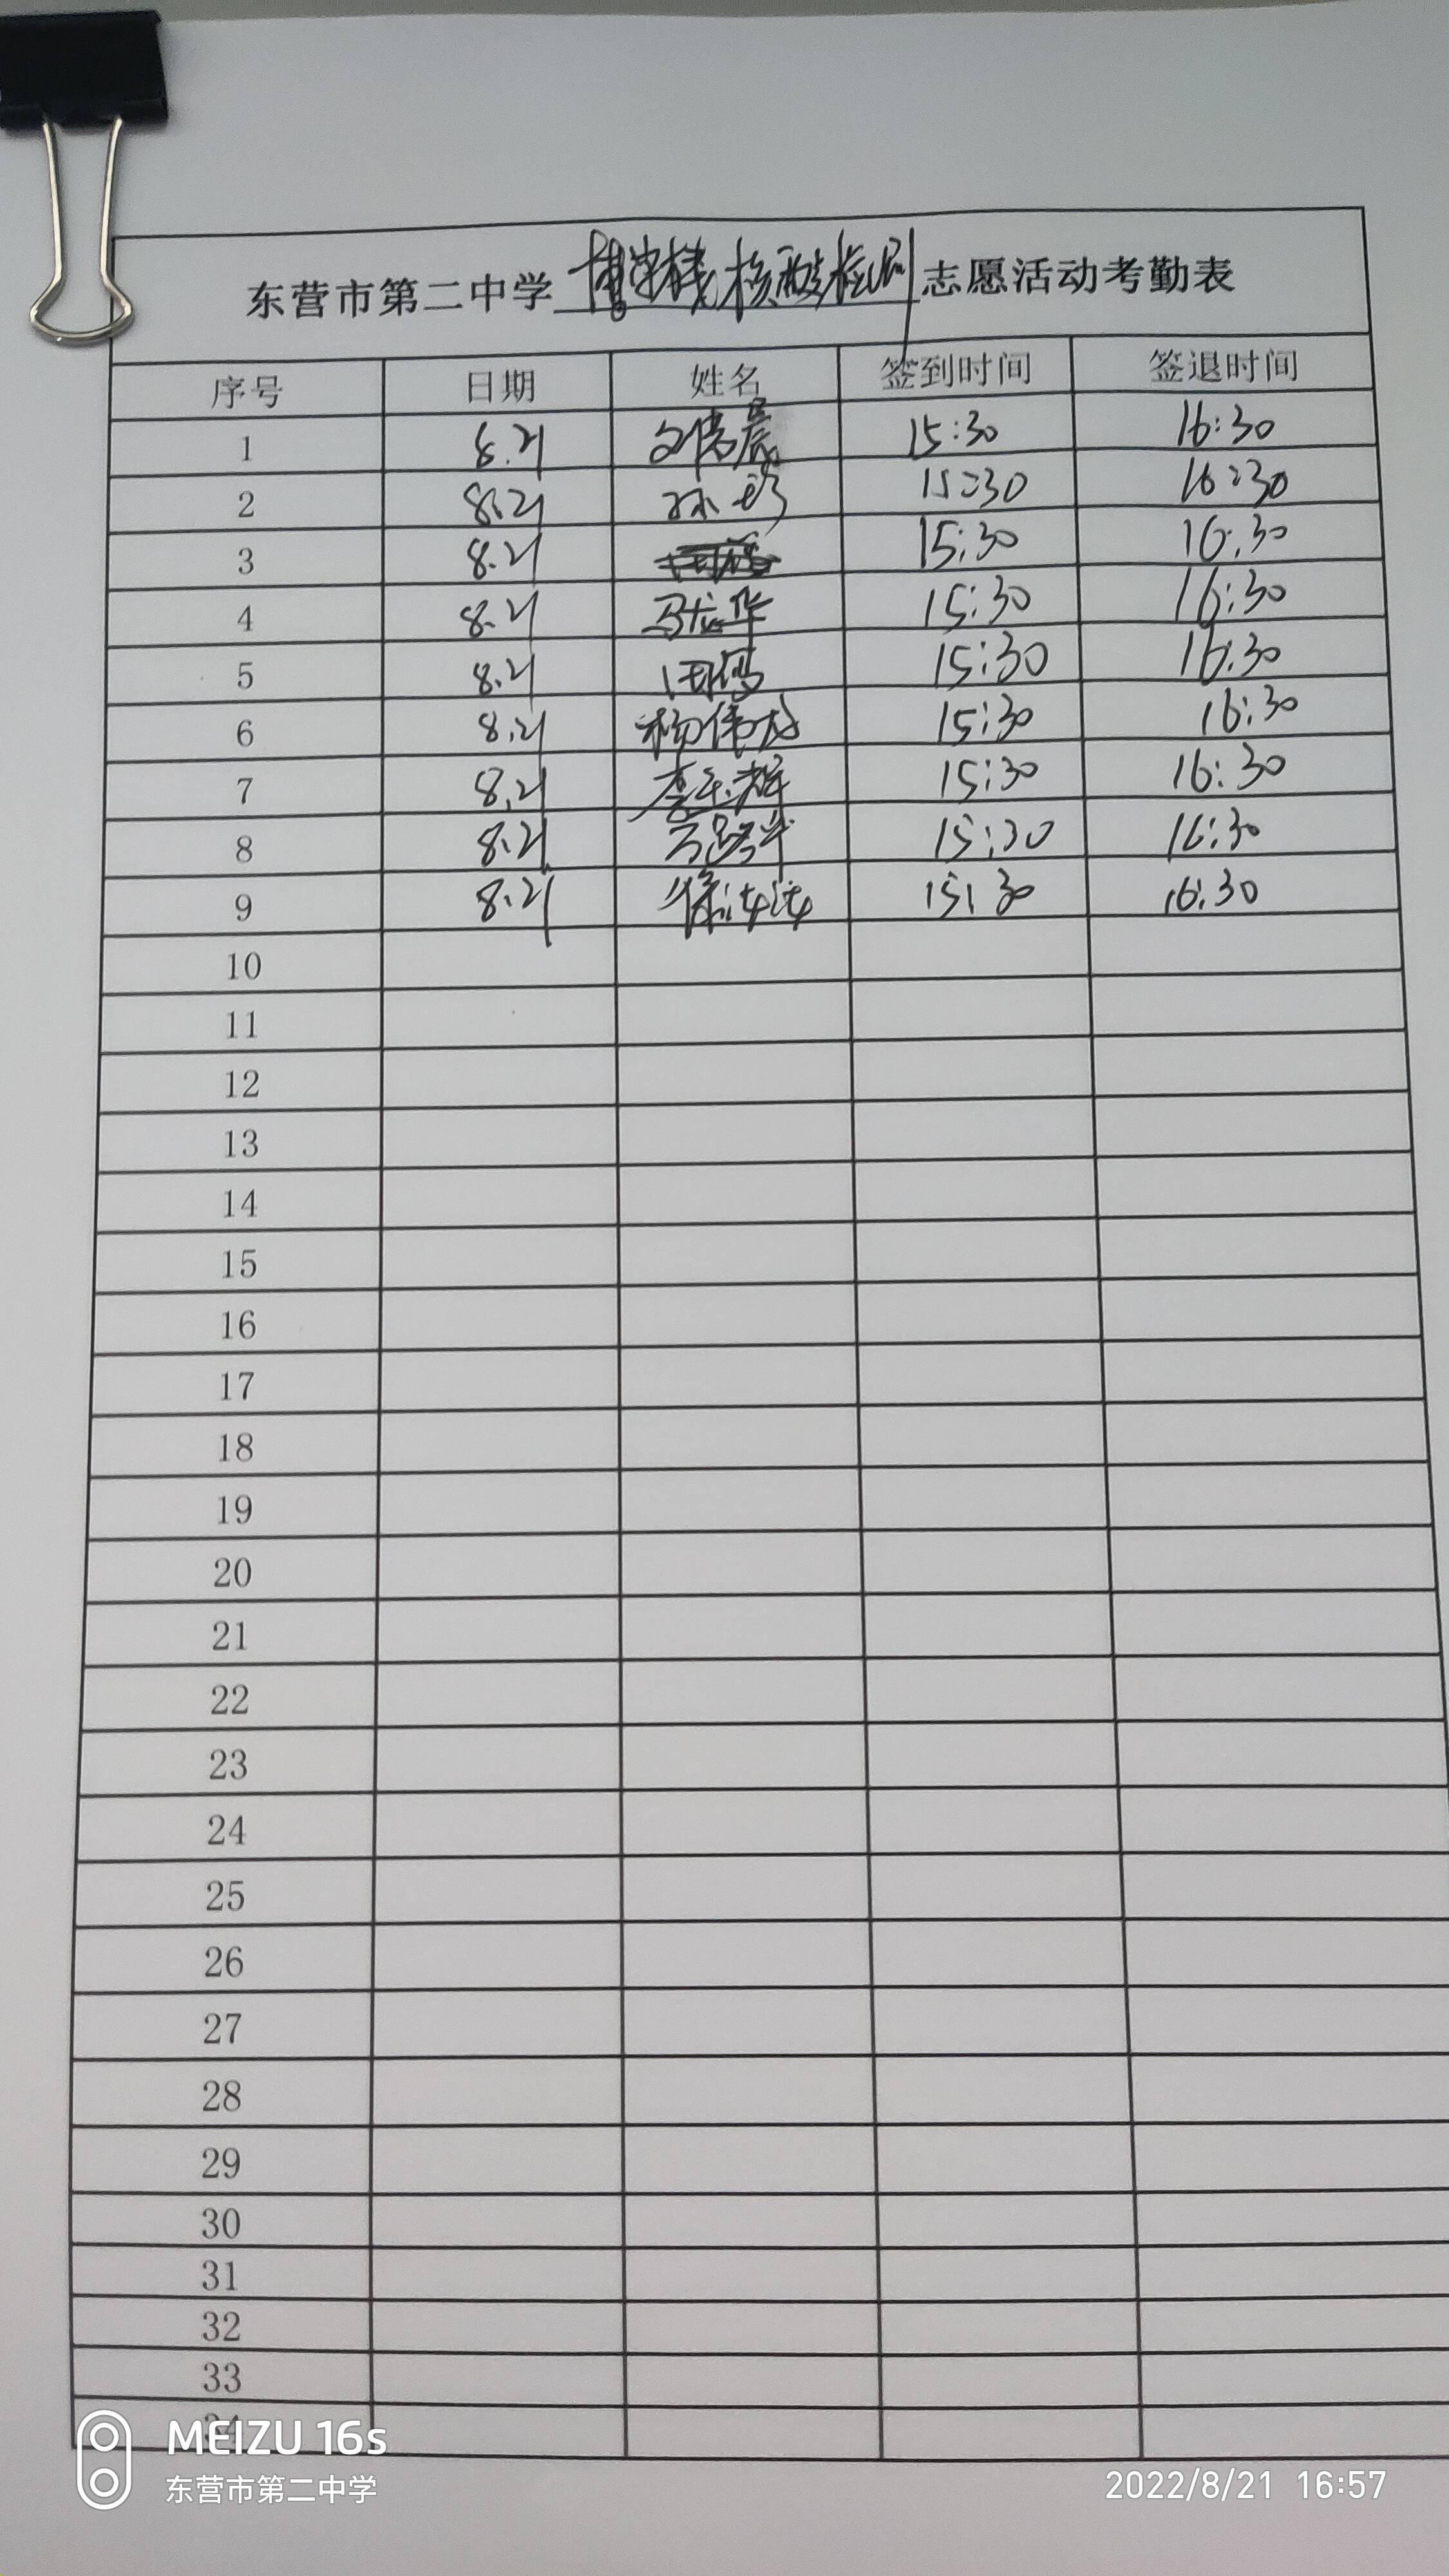 东营市第二中学 博学楼核酸检测 志愿活动考勤表
序号 日期 姓名 签到时间 签退时间
1 8.21 15:30 16:30
2 8.21 孙 15:30 16:30
3 8.21 15:30 16:30
4 8.21 马龙华 15:30 16:30
5 8.21 15:30 16:30
6 8.21 杨伟 15:30 16:30
7 8.21 李 辉 15:30 16:30
8 8.21 15:30 16:30
9 8.21 徐 15:30 16:30
10
11
12
13
14
15
16
17
18
19
20
21
22
23
24
25
26
27
28
29
30
31
32
33
34
MEIZU 16s
东营市第二中学
2022/8/21 16:57